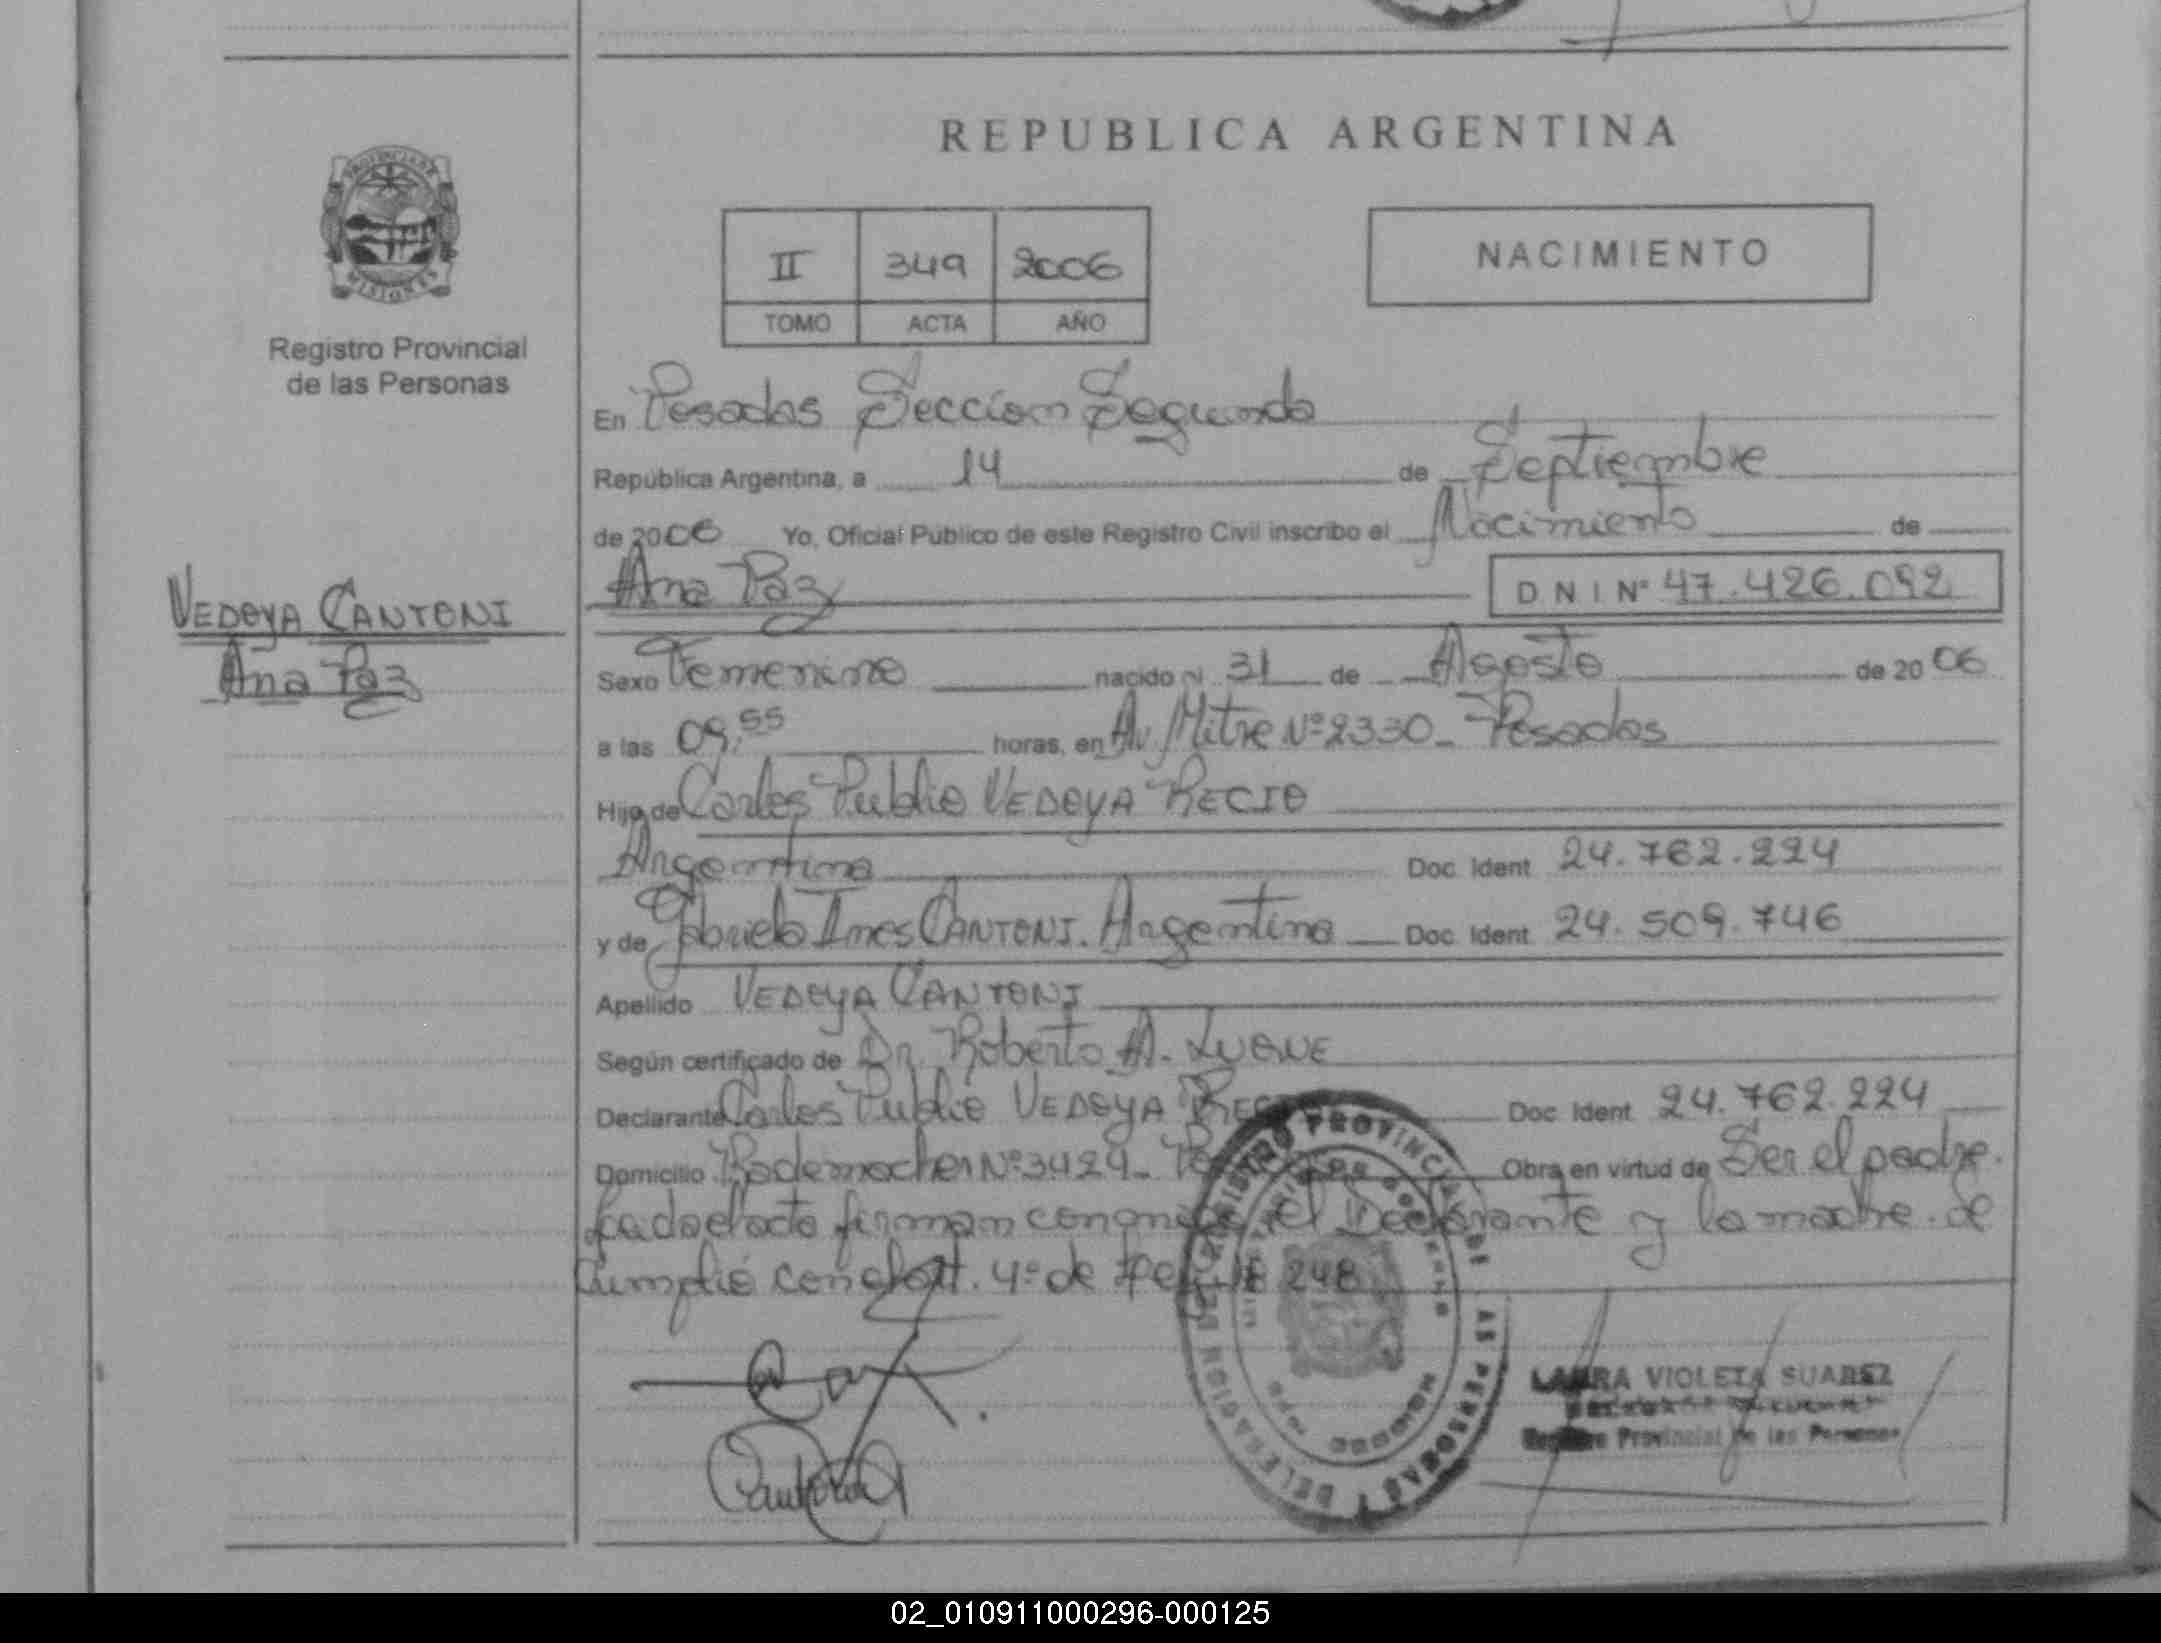 REPUBLICA ARGENTINA
PROVINCIA DE
MISIONES
Registro Provincial
de las Personas
II 349 2006
TOMO ACTA AÑO
NACIMIENTO
En Posadas Seccion Segunda
República Argentina, a 14 de Septiembre
de 2006 Yo, Oficial Público de este Registro Civil inscribo el Nacimiento de
Ana Paz DNI Nº 47.426.092
VEDOYA CANTONI
Ana Paz
Sexo Femenino nacido el 31 de Agosto de 2006
a las 09,55 horas, en Av. Mitre Nº 2330 - Posadas
Hijo de Carlos Publio VEDOYA RECIO
Argentina Doc. Ident. 24.762.224
y de Gabriela Ines CANTONI. Argentina Doc. Ident. 24.509.746
Apellido VEDOYA CANTONI
Según certificado de Dr. Roberto A. LUQUE
Declarante Carlos Publio VEDOYA Doc. Ident. 24.762.224
Domicilio Rademacher Nº 3429 - Obra en virtud de Ser el padre.
Leida el acta firman conmigo el Declarante y la madre. Se
Cumplió con el art. 4º de 248
REGISTRO PROVINCIAL DE LAS PERSONAS
DELEGACION
MISIONES
LAURA VIOLETA SUAREZ
Registro Provincial de las Personas
02_010911000296-000125